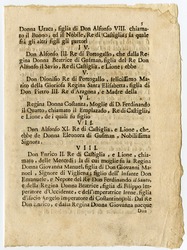 Donna Urraca, figlia di Don Alfonso VIII. chiama-
to il Buono, ed il Nobile, Re di Castiglia; la quale
frà gli altri figli gli partorì
IV.
Don Alfonso III. Re di Portogallo, che dalla Re-
gina Donna Beatrice di Gusman, figlia del Re Don
Alfonso il Savio, Re di Castiglia, e Lione; ebbe
V.
Don Dionisio Re di Portogallo, felicissimo Ma-
rito della Gloriosa Regina Santa Elisabetta, figlia di
Don Pietro III. Re d'Aragona, e Madre della
VI.
Regina Donna Costanza, Moglie di D. Ferdinando
il Quarto, chiamato il Emplazado, Re di Castiglia,
e Lione, de i quali fu figlio
VII.
Don Alfonso XI. Re di Castiglia, e Lione, che
ebbe de Donna Eleonora di Gusman, Nobilissima
Signora.
VIII.
Don Enrico II. Re di Castiglia, e Lione, chia-
mato, delle Mercedi. la di cui moglie fu la Regina
Donna Giovanna Manuel, figlia di Don Giovanni Ma-
nuel, Signore di Vigliena; figlio dell' Infante Don
Emanuele, e Nepote del Re Don Ferdinando il Santo,
e della Regina Donna Beatrice, figlia di Filippo Im-
peratore d'Occidente, e dell' Imperatrice Irene, figlia
d'Isacio Angelo Imperatore di Costantinopoli. Dal Re
Don Enrico, e dalla Regina Donna Giovanna nacque
Don